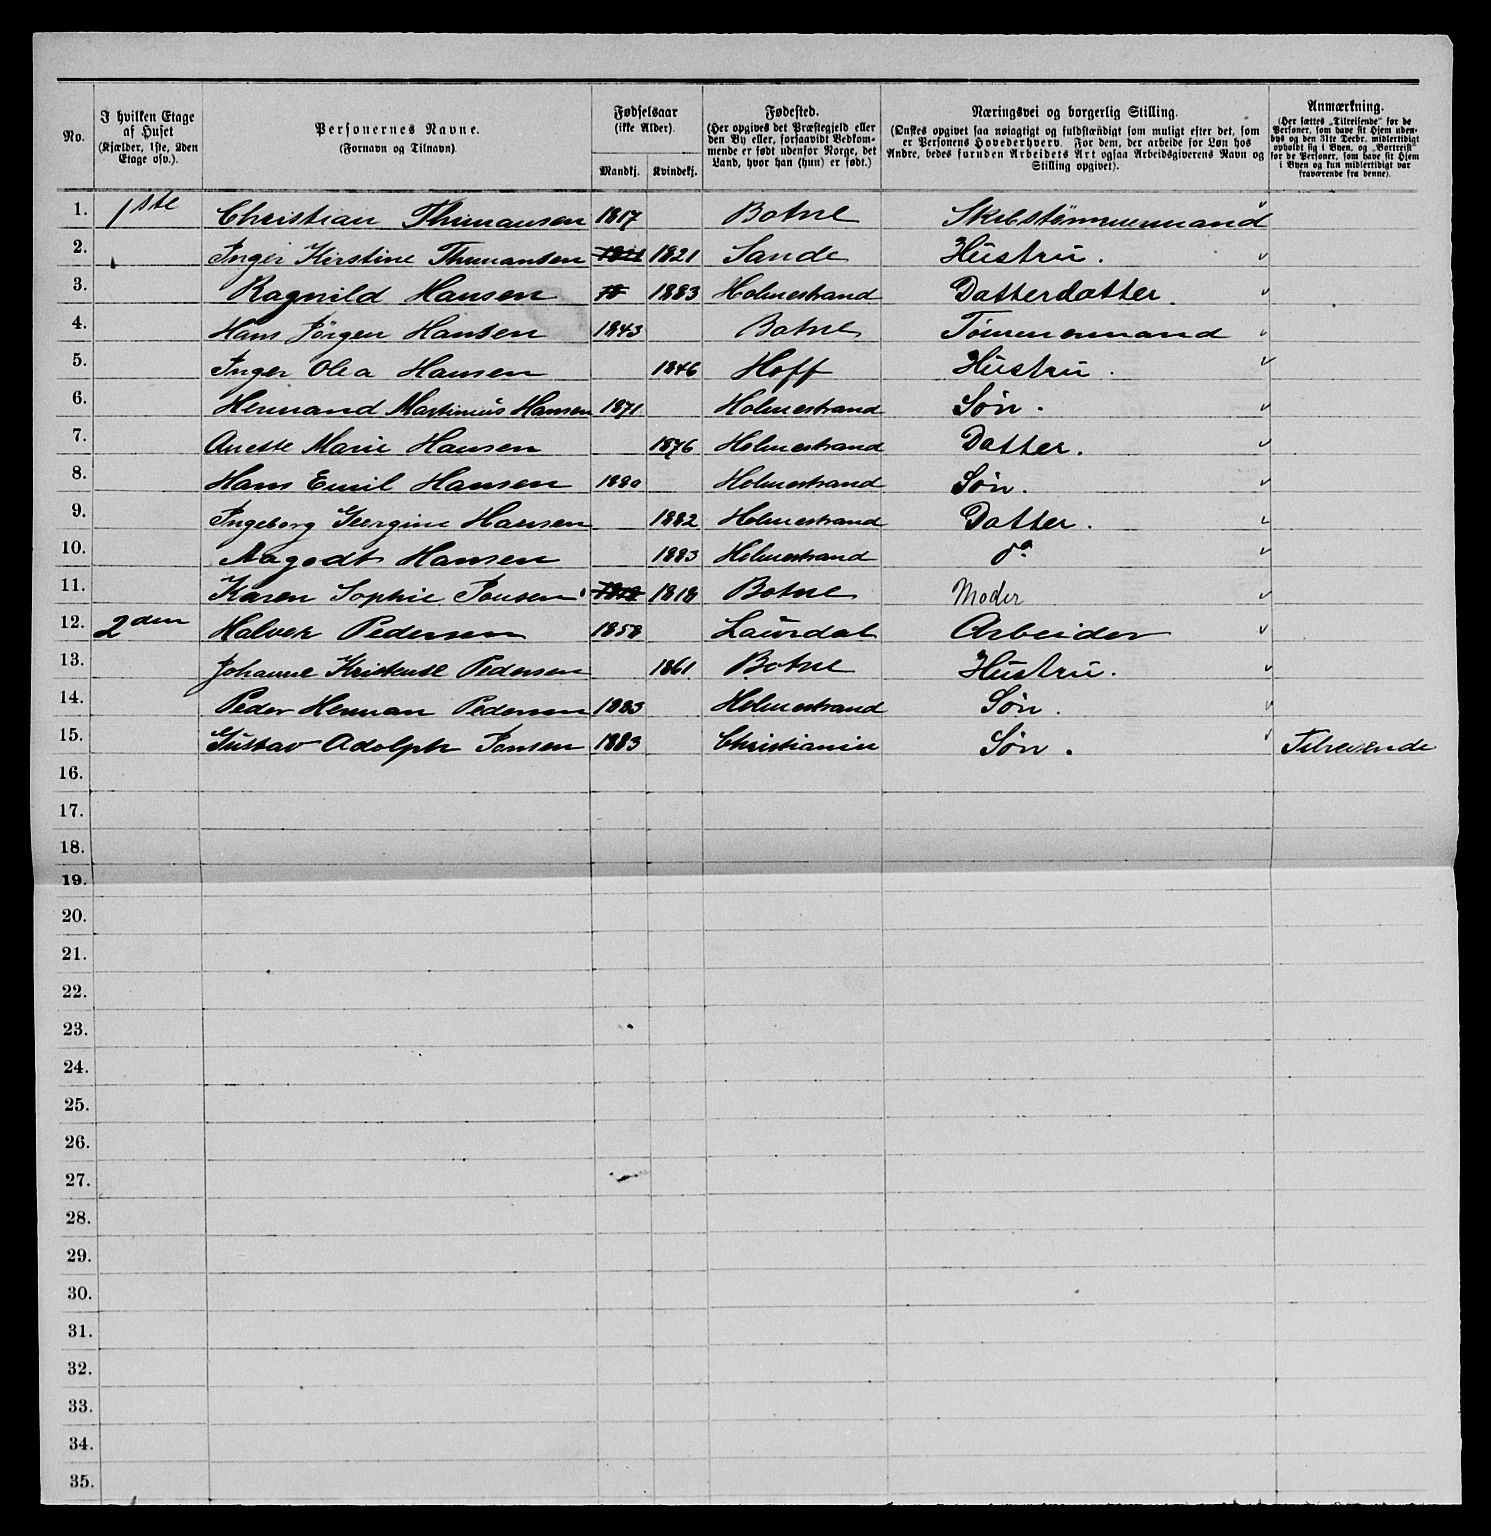 No.
I hvilken Etage af Huset (Kjælder, 1ste, 2den Etage osv.).
Personernes Navne. (Fornavn og Tilnavn).
Fødselsaar (ikke Alder). Mandkj. Kvindekj.
Fødested. (Her opgives det Præstegjeld eller den By eller, forsaavidt Vedkommende er født udenfor Norge, det Land, hvor han (hun) er født.)
Næringsvei og borgerlig Stilling. (Ønskes opgivet saa nøiagtigt og fuldstændigt som muligt efter det, som er Personens Hovederhverv. For dem, der arbeide for Løn hos Andre, bedes foruden Arbeidets Art ogsaa Arbeidsgiverens Navn og Stilling opgivet).
Anmærkning. (Her sættes "Tilreisende" for de Personer, som have sit Hjem udenbys og den 31te Decbr. midlertidigt opholdt sig i Byen, og "Bortreist" for de Personer, som have sit Hjem i Byen og kun midlertidigt var fraværende fra denne).
1. 1ste Christian Thuransen 1817 Botne Skibstømmermand
2. Inger Kirstine Thuransen 1821 1821 Sande Hustru.
3. Ragnild Hansen 18 1883 Holmestrand Datterdatter.
4. Hans Jörgen Hansen 1843 Botne Tömmermand
5. Inger Olea Hansen 1846 Hoff Hustru.
6. Hermand Martinius Hansen 1871 Holmestrand Sön.
7. Anette Marie Hansen 1876 Holmestrand Datter.
8. Hans Emil Hansen 1880 Holmestrand Sön.
9. Ingeborg Georgine Hansen 1882 Holmestrand Datter.
10. Aagodt Hansen 1883 Holmestrand do
11. Karen Sophie Jonsen 1818 1818 Botne Moder
12. 2den Halver Pedersen 1858 Laurdal Arbeider
13. Johanne Kristense Pedersen 1861 Botne Hustru.
14. Peder Herman Pedersen 1883 Holmestrand Sön.
15. Gustav Adolph Jonsen 1883 Christiania Sön. Tilreisende
16.
17.
18.
19.
20.
21.
22.
23.
24.
25.
26.
27.
28.
29.
30.
31.
32.
33.
34.
35.